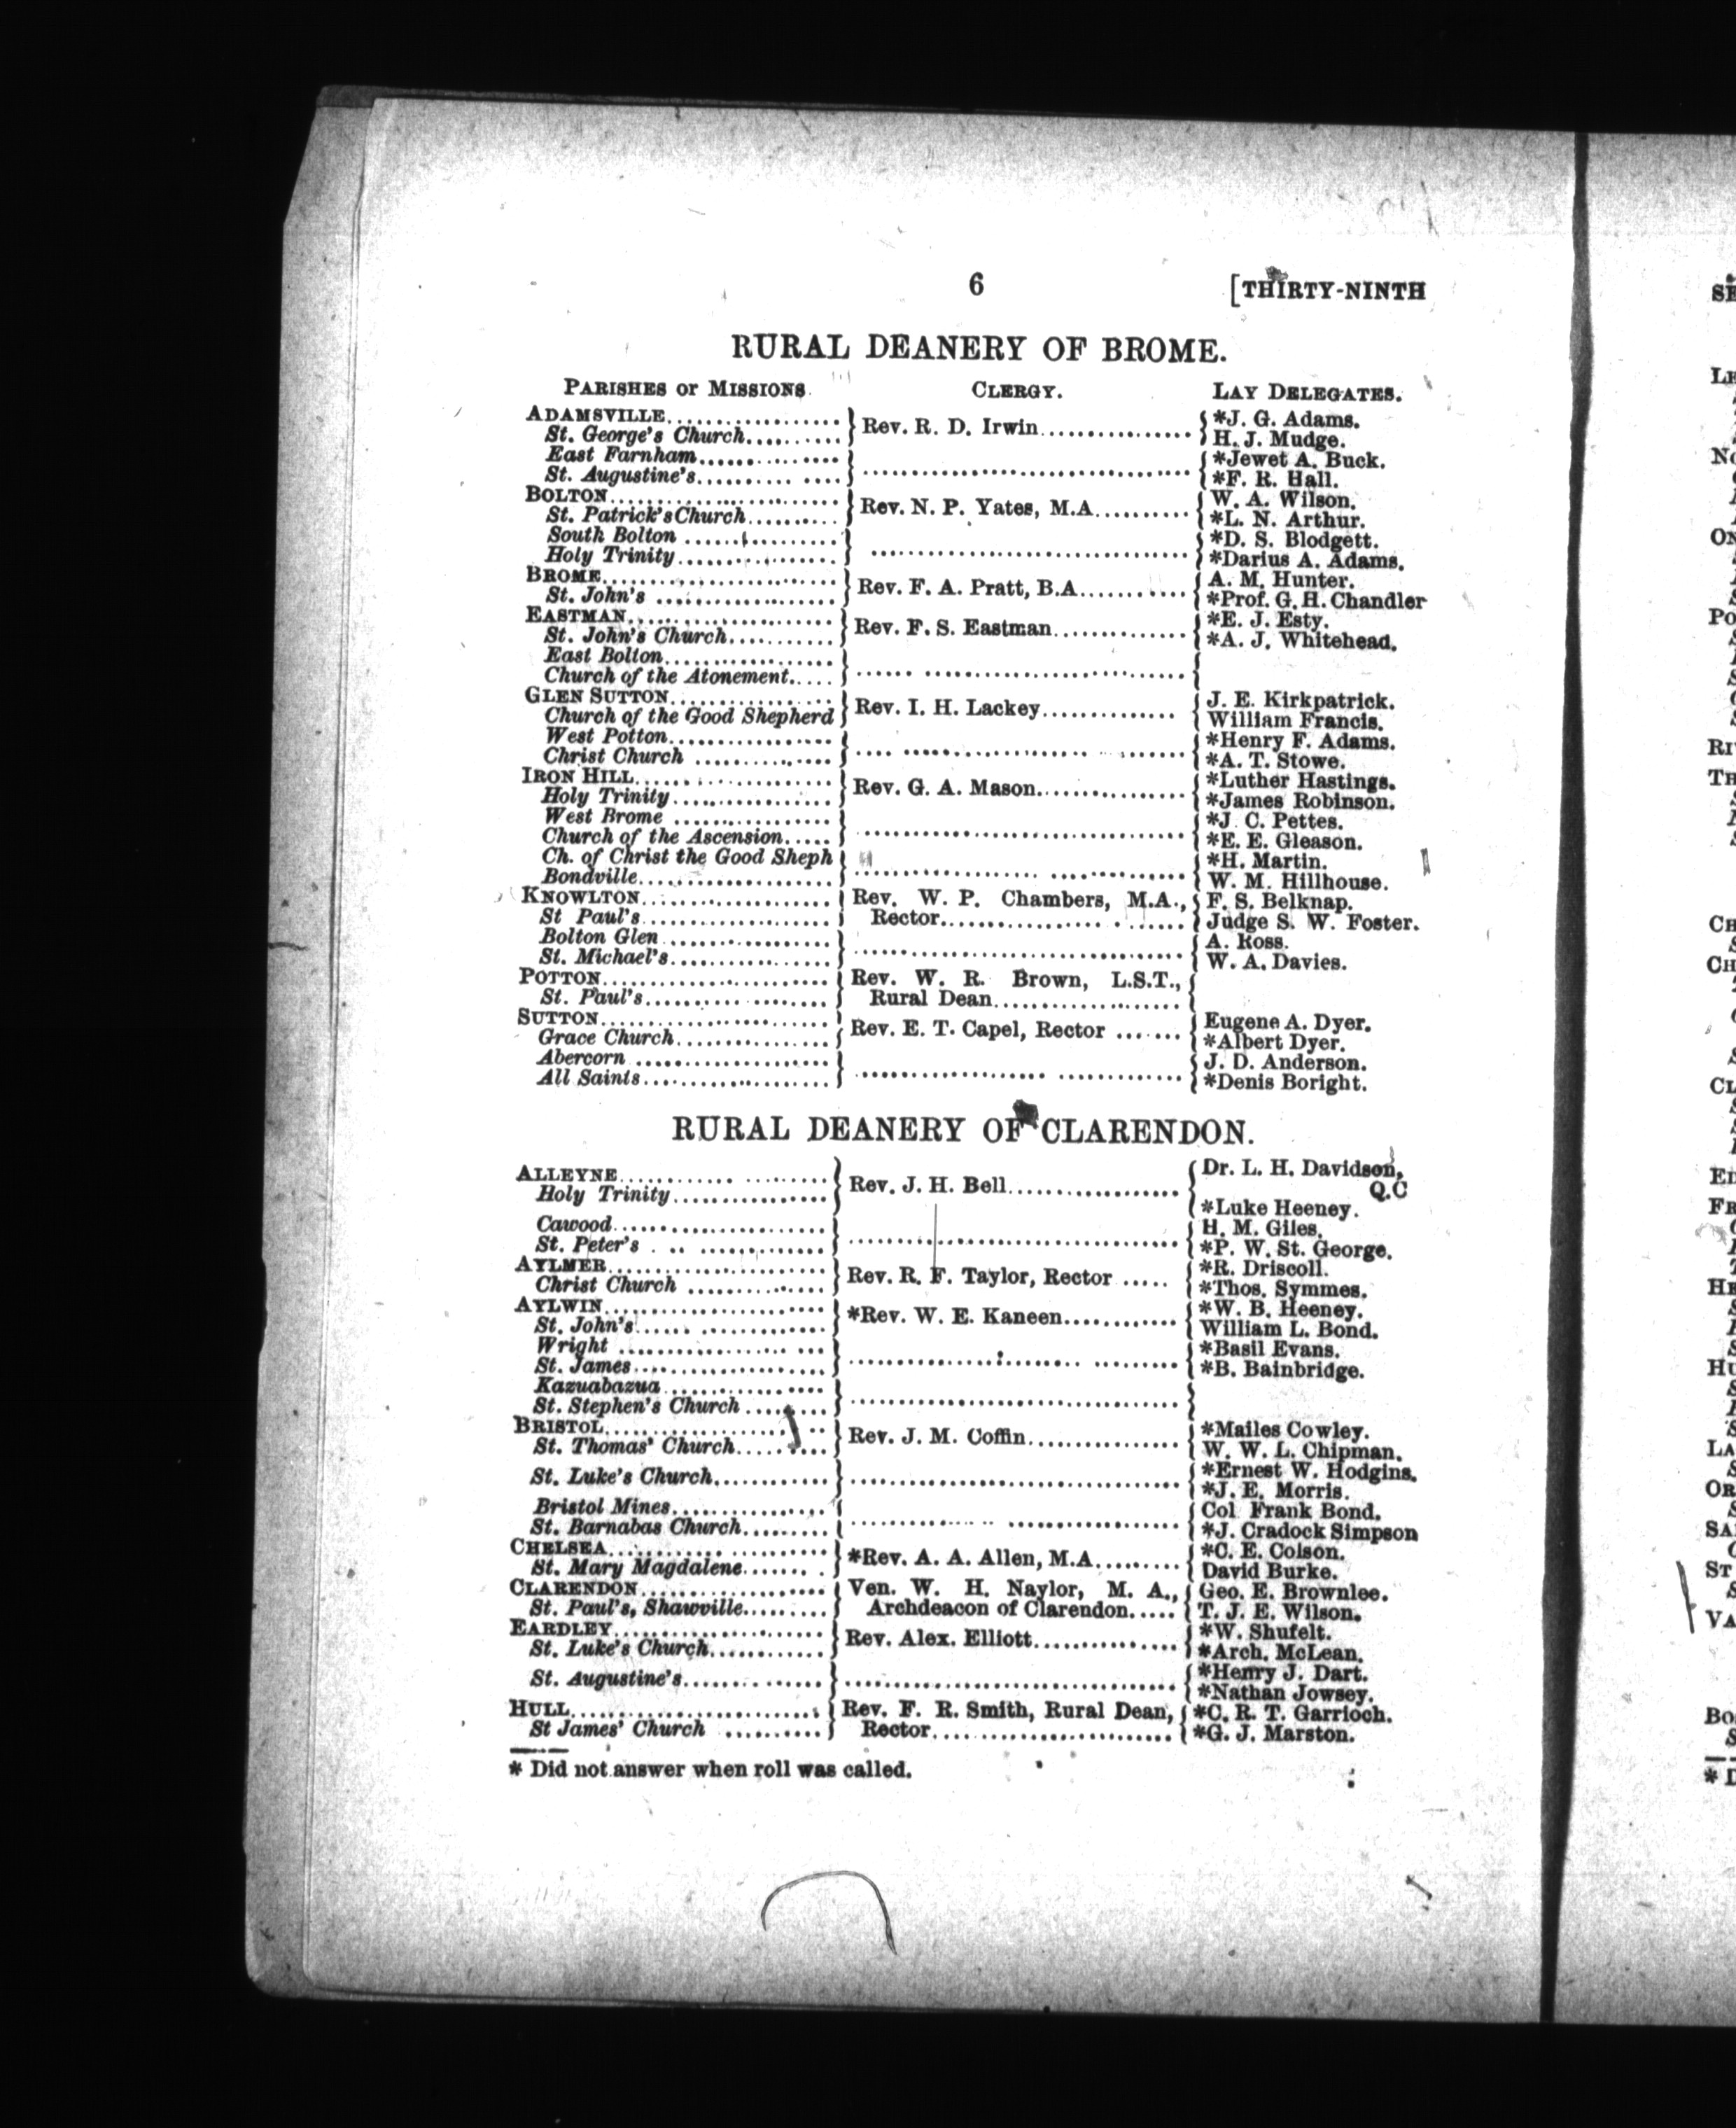 6 [THIRTY-NINTH
RURAL DEANERY OF BROME.
PARISHES or MISSIONS. CLERGY. LAY DELEGATES.
ADAMSVILLE.................. } Rev. R. D. Irwin................ { *J. G. Adams.
St. George's Church.......... H. J. Mudge.
East Farnham............... } ................................. { *Jewet A. Buck.
St. Augustine's.......... .... *F. R. Hall.
BOLTON........................ } Rev. N. P. Yates, M.A.......... { W. A. Wilson.
St. Patrick's Church.......... *L. N. Arthur.
South Bolton ................ } ................................ { *D. S. Blodgett.
Holy Trinity................. *Darius A. Adams.
BROME......................... } Rev. F. A. Pratt, B.A........... { A. M. Hunter.
St. John's ................... *Prof. G. H. Chandler
EASTMAN....................... } Rev. F. S. Eastman............. { *E. J. Esty.
St. John's Church........... *A. J. Whitehead.
East Bolton.................. } ...... .......................... {
Church of the Atonement.....
GLEN SUTTON................. } Rev. I. H. Lackey.............. { J. E. Kirkpatrick.
Church of the Good Shepherd William Francis.
West Potton.................. } .... .................. ....... { *Henry F. Adams.
Christ Church .............. *A. T. Stowe.
IRON HILL..................... } Rev. G. A. Mason............... { *Luther Hastings.
Holy Trinity.................. *James Robinson.
West Brome ................. } ................................. { *J. C. Pettes.
Church of the Ascension..... *E. E. Gleason.
Ch. of Christ the Good Sheph } .................. ............. { *H. Martin.
Bondville..................... W. M. Hillhouse.
KNOWLTON.................... } Rev. W. P. Chambers, M.A., { F. S. Belknap.
St Paul's..................... Rector................. . ...... Judge S. W. Foster.
Bolton Glen .................. } ................................. { A. Ross.
St. Michael's.................. W. A. Davies.
POTTON........................ } Rev. W. R. Brown, L.S.T., {
St. Paul's.......... ......... Rural Dean...................
SUTTON........................ } Rev. E. T. Capel, Rector ....... { Eugene A. Dyer.
Grace Church................. *Albert Dyer.
Abercorn ..................... } ................... ............. { J. D. Anderson.
All Saints..................... *Denis Boright.
RURAL DEANERY OF CLARENDON.
ALLEYNE.............. ........ } Rev. J. H. Bell.................. { Dr. L. H. Davidson,
Holy Trinity................. Q.C
*Luke Heeney.
Cawood........................ } ................................. { H. M. Giles.
St. Peter's . .. ............. *P. W. St. George.
AYLMER....................... } Rev. R. F. Taylor, Rector ..... { *R. Driscoll.
Christ Church .............. *Thos. Symmes.
AYLWIN....................... } *Rev. W. E. Kaneen............ { *W. B. Heeney.
St. John's...... .............. William L. Bond.
Wright ................... ... } ........................ ......... { *Basil Evans.
St. James..................... *B. Bainbridge.
Kazuabazua.................. } ................................. {
St. Stephen's Church ........
BRISTOL....................... } Rev. J. M. Coffin................ { *Mailes Cowley.
St. Thomas' Church.......... W. W. L. Chipman.
St. Luke's Church............ } ................................. { *Ernest W. Hodgins.
*J. E. Morris.
Bristol Mines................ { .............. .................. { Col Frank Bond.
St. Barnabas Church......... *J. Cradock Simpson
CHELSEA...................... } *Rev. A. A. Allen, M.A......... { *C. E. Colson.
St. Mary Magdalene....... . David Burke.
CLARENDON................... } Ven. W. H. Naylor, M. A., { Geo. E. Brownlee.
St. Paul's, Shawville......... Archdeacon of Clarendon..... T. J. E. Wilson.
EARDLEY...................... } Rev. Alex. Elliott............... { *W. Shufelt.
St. Luke's Church............ *Arch. McLean.
St. Augustine's............... } ................................. { *Henry J. Dart.
*Nathan Jowsey.
HULL.......................... } Rev. F. R. Smith, Rural Dean, { *C. R. T. Garrioch.
St James' Church .......... Rector......................... *G. J. Marston.
* Did not answer when roll was called.